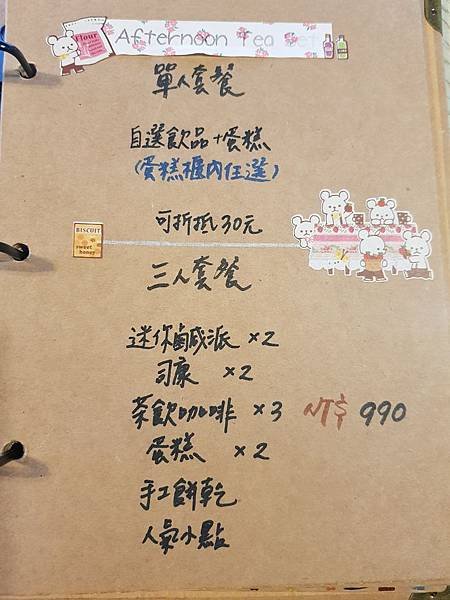 Flour
Afternoon Tea Set
單人套餐
自選飲品+蛋糕
(蛋糕櫃內任選)
可折抵30元
BISCUIT
sweet
honey
三人套餐
迷你鹹派 ×2
司康 ×2
茶飲咖啡 ×3 NT$ 990
蛋糕 ×2
手工餅乾
人氣小點